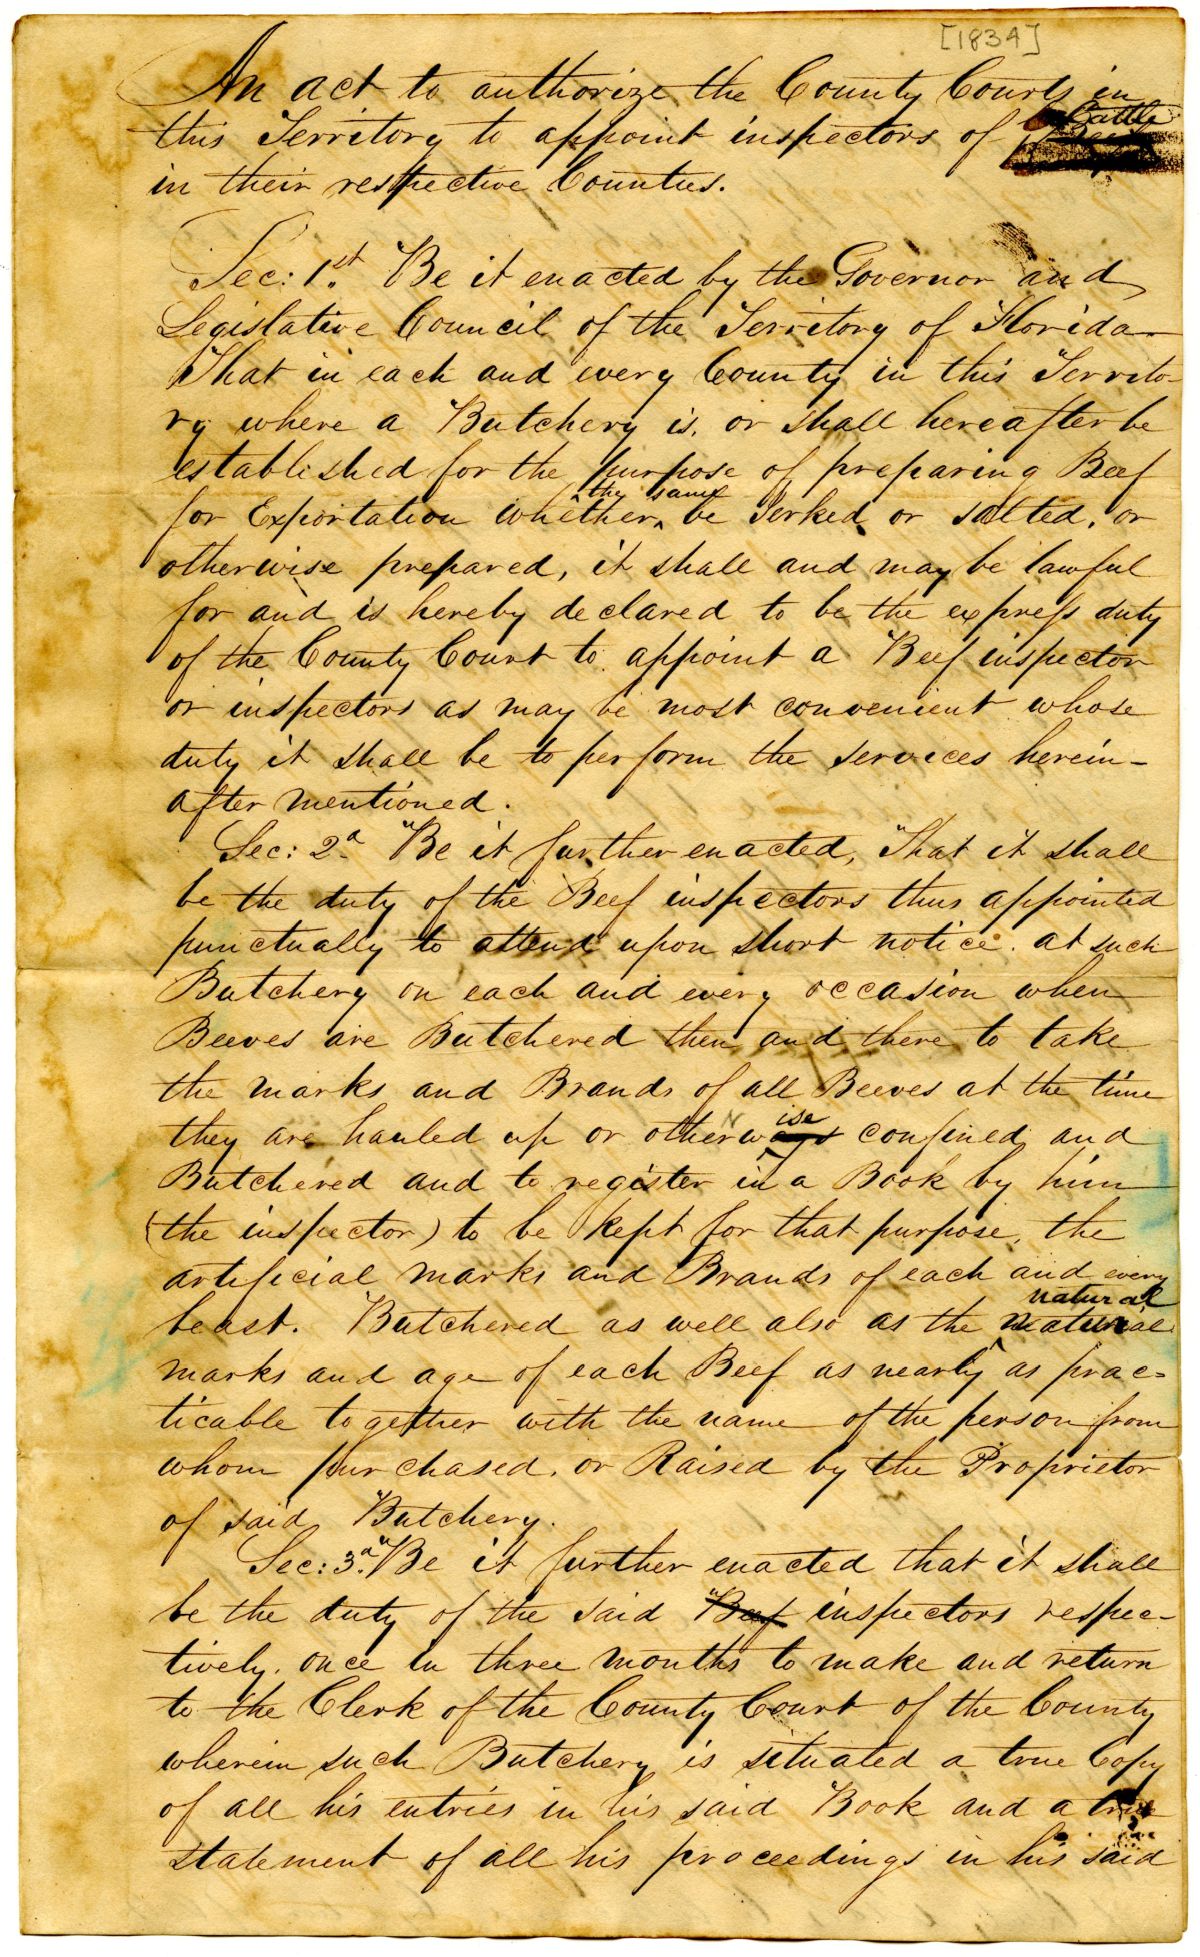 [1834]
An act to authorize the County Courts in
this Territory to appoint inspectors of Cattle
in their respective Counties.
Sec: 1st. Be it enacted by the Governor and
Legislative Council of the Territory of Florida
That in each and every County in this Territo-
ry where a Butchery is, or shall hereafter be
established for the purpose of preparing Beef
for Exportation whether the same be Jerked or salted, or
otherwise prepared, it shall and may be lawful
for and is hereby declared to be the express duty
of the County Court to appoint a Beef inspector
or inspectors as may be most convenient whose
duty it shall be to perform the services herein-
after mentioned.
Sec: 2d. Be it further enacted, That it shall
be the duty of the Beef inspectors thus appointed
punctually to attend upon short notice at such
Butchery on each and every occasion when
Beeves are Butchered then and there to take
the marks and Brands of all Beeves at the time
they are hauled up or otherwise confined and
Butchered and to register in a Book by him
(the inspector) to be kept for that purpose, the
artificial marks and Brands of each and every
beast. Butchered as well also as the natural
marks and age of each Beef as nearly as prac-
ticable together with the name of the person from
whom purchased, or Raised by the Proprietor
of said Butchery.
Sec: 3d. Be it further enacted that it shall
be the duty of the said Beef inspectors respec-
tively, once in three months to make and return
to the Clerk of the County Court of the County
wherein such Butchery is situated a true Copy
of all his entries in his said Book and a true
statement of all his proceedings in his said